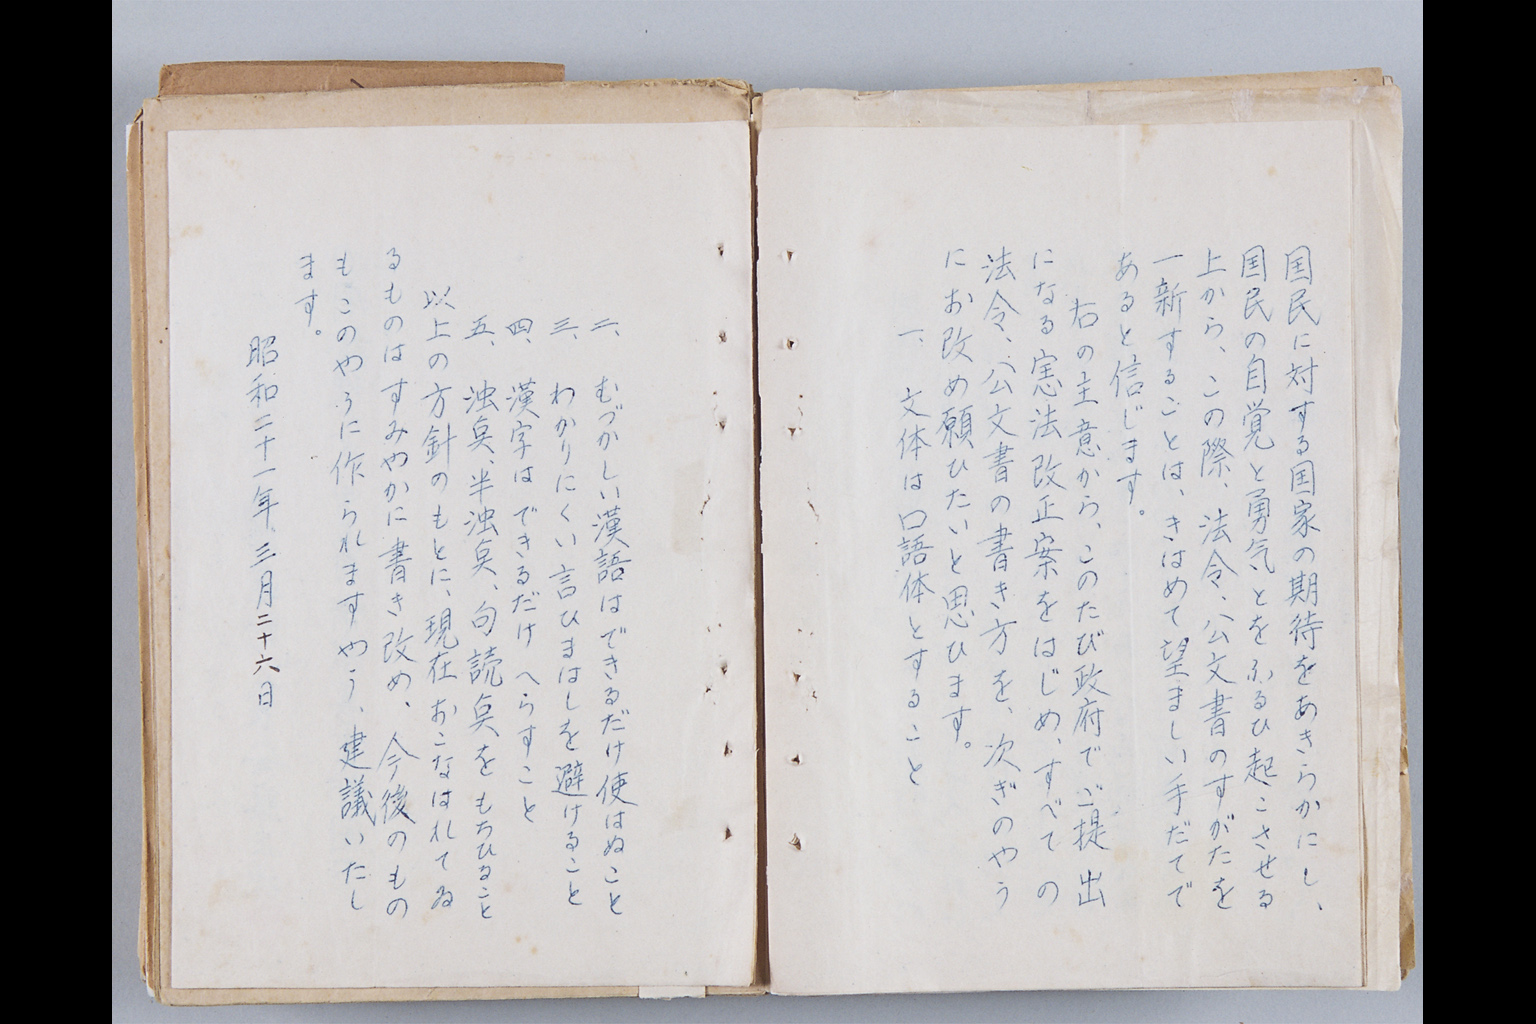 国民に対する国家の期待をあきらかにし、
国民の自覚と勇気とをふるひ起こさせる
上から、この際、法令、公文書のすがたを
一新することは、きはめて望ましい手だてで
あると信じます。
右の主意から、このたび政府でご提出
になる憲法改正案をはじめ、すべての
法令、公文書の書き方を、次ぎのやう
にお改め願ひたいと思ひます。
一、文体は口語体とすること
二、むづかしい漢語はできるだけ使はぬこと
三、わかりにくい言ひまはしを避けること
四、漢字はできるだけへらすこと
五、濁点、半濁点、句読点をもちひること
以上の方針のもとに、現在おこなはれてゐ
るものはすみやかに書き改め、今後のもの
もこのやうに作られますやう、建議いたし
ます。
昭和二十一年、三月二十六日